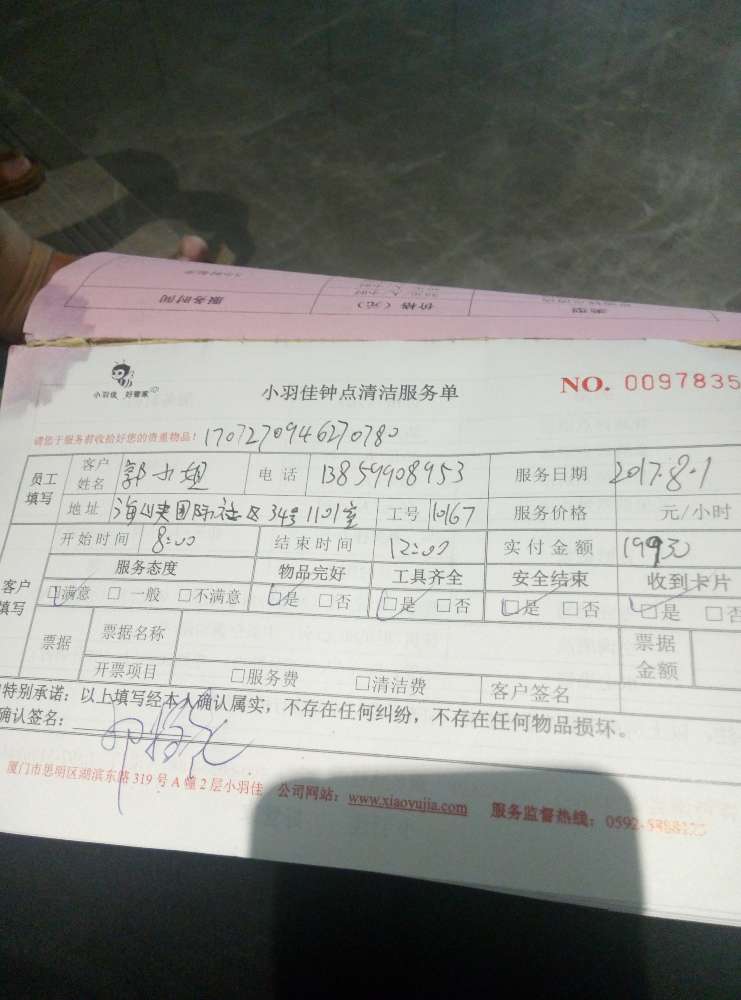 服务时间 价格（元） 类型
小羽佳 好管家
小羽佳钟点清洁服务单
NO. 0097835
请您于服务前收拾好您的贵重物品！1707270946270780
员工填写 客户姓名 郭小姐 电话 13859908953 服务日期 2017.8.1
地址 海峡国际社区34号1101室 工号 10167 服务价格 元/小时
客户填写 开始时间 8:00 结束时间 12:00 实付金额
服务态度 物品完好 工具齐全 安全结束 收到卡片
□满意 □一般 □不满意 □是 □否 □是 □否 □是 □否 □是 □否
票据 票据名称 票据金额
开票项目 □服务费 □清洁费 客户签名
特别承诺：以上填写经本人确认属实，不存在任何纠纷，不存在任何物品损坏。
确认签名：
厦门市思明区湖滨东路319号A幢2层小羽佳 公司网站：www.xiaoyujia.com 服务监督热线：0592-